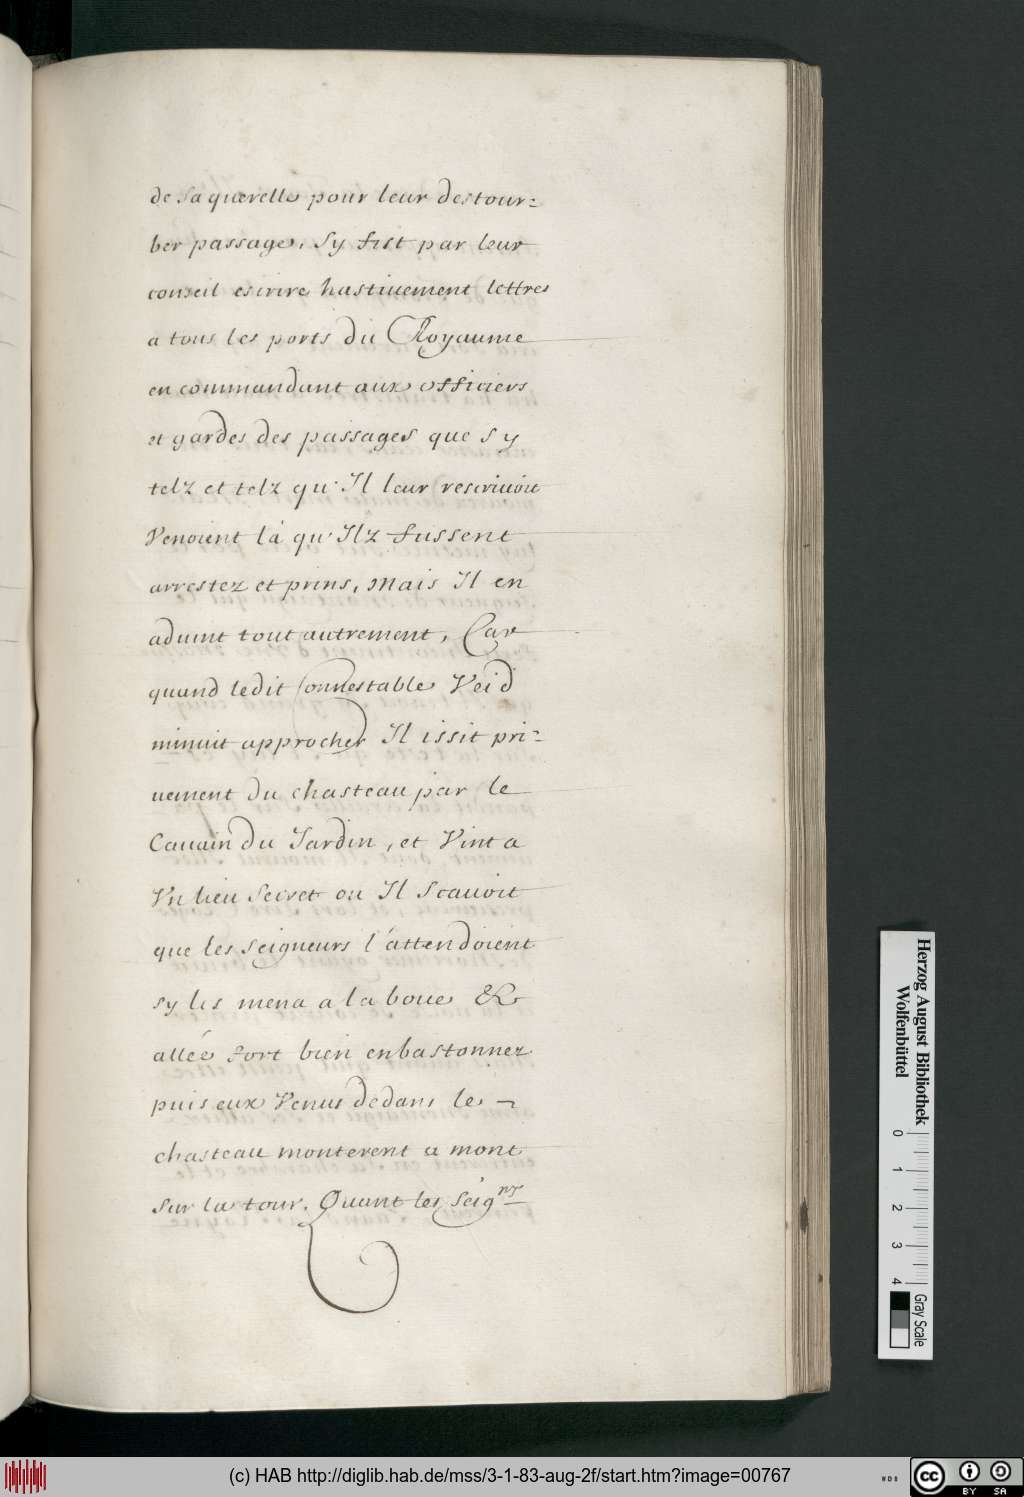 de sa querelle pour leur destour-
ber passage, Sy fist par leur
conseil escrire hastiuement lettres
a tous les ports du Royaume
en commandant aux officiers
et gardes des passages que s y
telz et telz qu'Il leur rescriuoit
Venoient là qu'Ilz fussent
arrestez et prins, Mais Il en
aduint tout autrement, Car
quand ledit Connestable Veid
minuit approcher Il issit pri-
uement du chasteau par le
Cauain du Jardin, et Vint a
Vn lieu secret ou Il Scauoit
que les Seigneurs l'attendoient
sy les mena a la boue &
allée fort bien enbastonnez
puis eux Venus dedans le
chasteau monterent a mont
Sur la tour. Quant les Seignrs
Herzog August Bibliothek
Wolfenbüttel
0 1 2 3 4
Gray Scale
(c) HAB http://diglib.hab.de/mss/3-1-83-aug-2f/start.htm?image=00767
cc BY SA